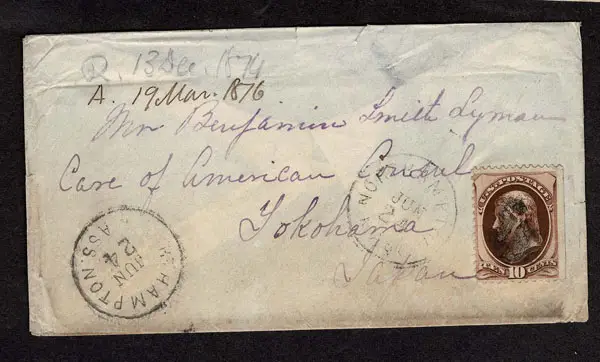 R. 13 Dec. 1874
A. 19 Mar. 1876
Mr Benjamin Smith Lyman
Care of American Consul
Yokohama
Japan
HAMPTON
JUN
24
ASS.
NO
JUN
U.S. POSTAGE
TEN 10 CENTS